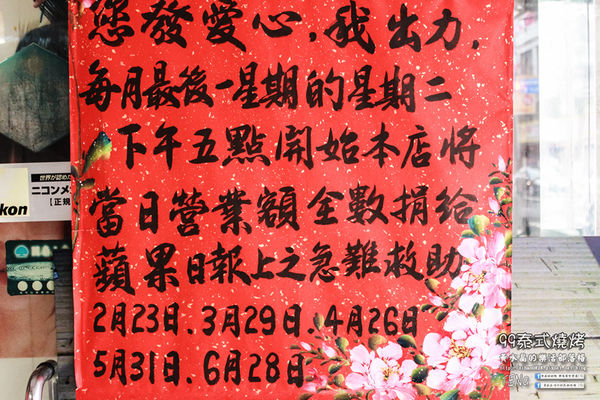 您發愛心,我出力,
每月最後一星期的星期二
下午五點開始本店將
當日營業額全數捐給
蘋果日報上之急難救助
2月23日、3月29日、4月26日
5月31日、6月28日
世界が認めた
ニコンメ
【正規
kon
99泰式燒烤
黃水晶的樂活部落格